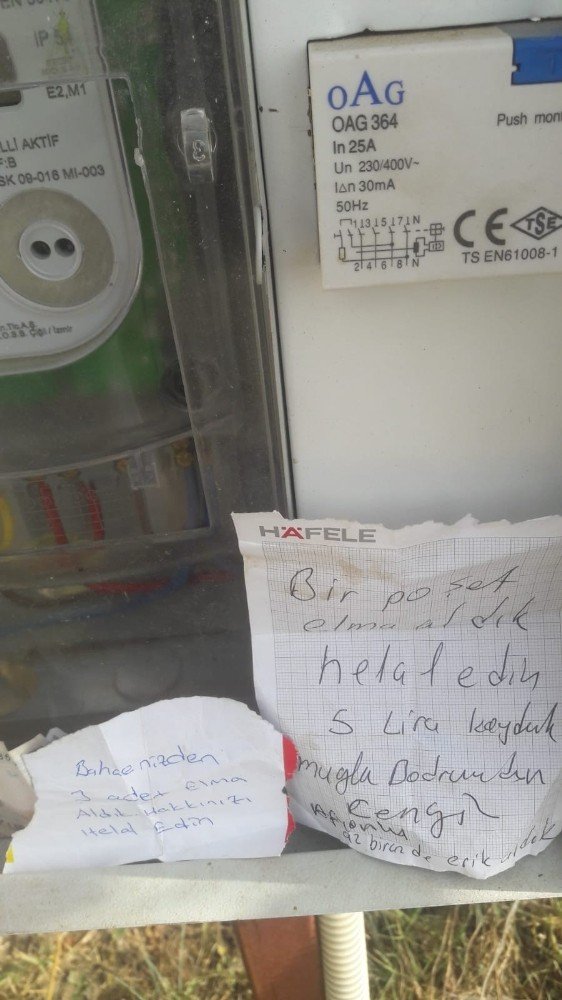 E2,M1
LLİ AKTİF
F:B
SK 09-018 MI-003
3
OAG
OAG 364
In 25A
Un 230/400V~
I∆n 30mA
50Hz
Push mon
CE
TSE
TS EN61008-1
1 3 5 7 N
2 4 6 8 N
HÄFELE
Bir poşet
elma aldık
helal edin
5 Lira koyduk
mugla Bodrumdan
Cengiz
Afyonlu
az biraz de erik yidik
Bahcenizden
3 adet Elma
Aldık. Hakkınızı
Helal Edin